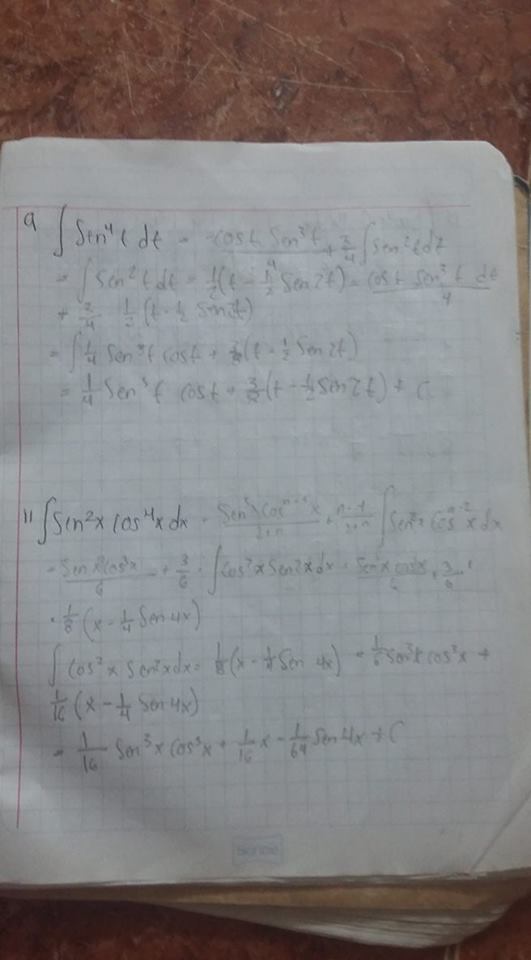 9 ∫ Sen⁴t dt = -cos t Sen³t / 4 + 3/4 ∫ Sen²t dt
= ∫ Sen²t dt = 1/2 (t - 1/2 Sen 2t) = cos t Sen³t dt / 4
+ 3/4 1/2 (t - 1/2 Sen 2t)
= ∫ 1/4 Sen³t cos t + 3/8 (t - 1/2 Sen 2t)
= 1/4 Sen³t cos t + 3/8 (t - 1/2 Sen 2t) + C
11 ∫ Sen²x cos⁴x dx = / 2+n + n-1 / 2+n ∫ Sen²x Cosⁿ⁻²x dx
= Sen³x cos³x / 6 + 3/6 · ∫ Cos²x Sen²x dx = / 6 + 3/6 ·
· 1/8 (x - 1/4 Sen 4x)
∫ Cos²x Sen²x dx = 1/8 (x - 1/4 Sen 4x) = 1/6 Sen³x cos³x +
1/16 (x - 1/4 Sen 4x)
= 1/16 Sen³x cos³x + 1/16 x - 1/64 Sen 4x + C